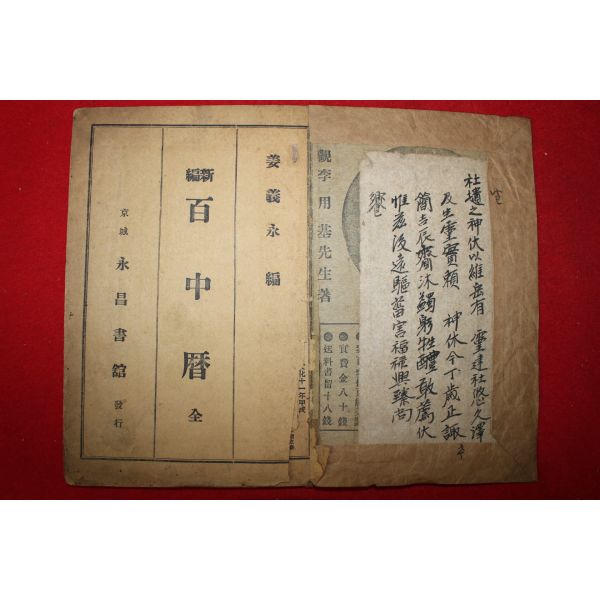 社壝之神伏以維岳有 靈建社悠久澤
及生靈實賴 神休今丁歲正諏
簡吉辰齋沐蠲躬牲醴敢薦伏
惟玆後遠驅菑害福祿興臻尚
饗
觀李用基先生著
實費金八十錢
送料書留十八錢
姜義永編
新編百中曆全
京城 永昌書舘 發行